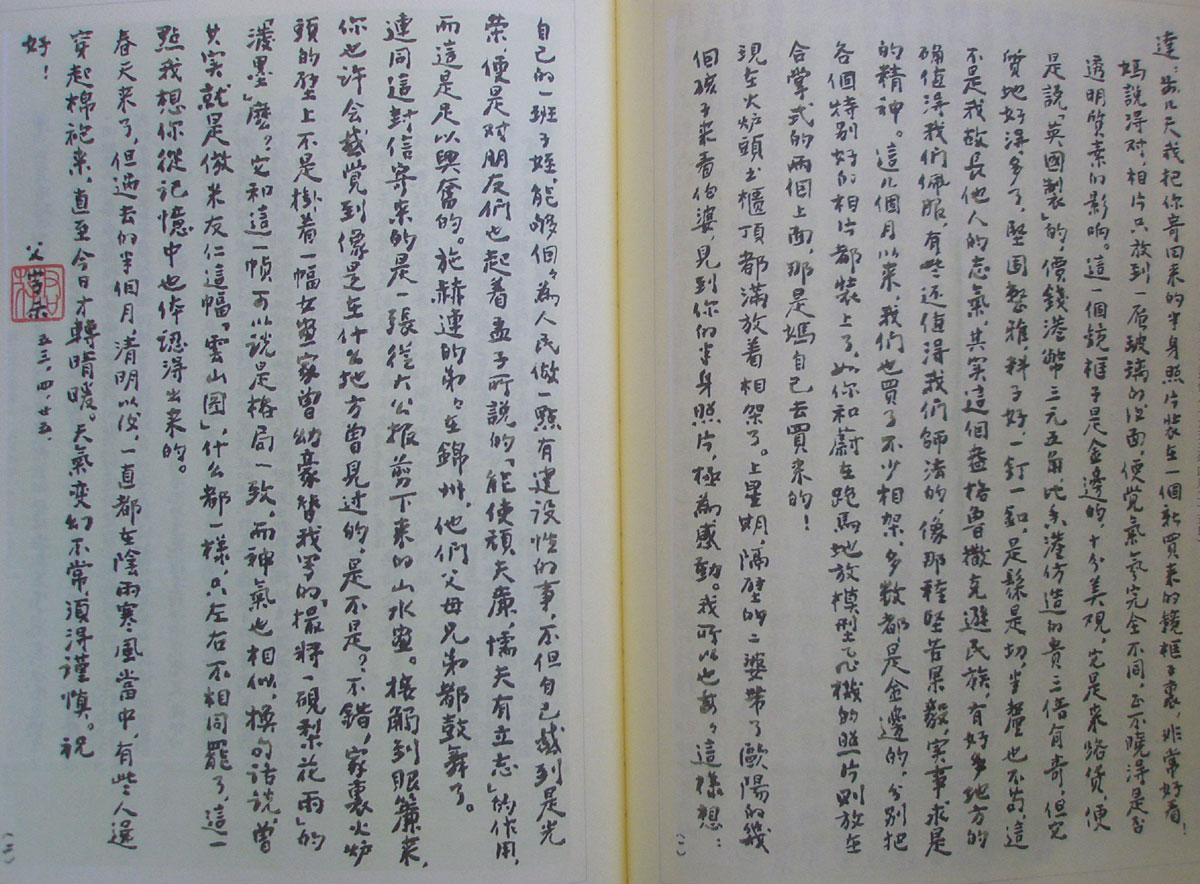 達：前几天我把你寄回来的半身照片装在一個新買来的镜框子裏，非常好看！
媽説得对，相片只放到一層玻璃的後面，便觉氣氛完全不同，正不曉得是否
透明質素的影响。這一個镜框子是金邊的，十分美观，完是来路货，便
是説「英國製」的，價錢港幣三元五角，比香港仿造的貴三倍有奇，但完
質地好得多了，堅固整雅，料子好，一釘一釦，是鬆是切，半釐也不苟，這
不是我故長他人的志氣，其实這個盎格魯撒克遜民族，有好多地方的
确值得我们佩服，有些还值得我们師法的，像那種堅苦果毅，实事求是
的精神。這几個月以来，我們也買了不少相架，多数都是金邊的，分别把
各個特别好的相片都裝上了，如你和蔚在跑馬地放模型飞機的照片則放在
合掌式的兩個上面，那是媽自己去買来的！
現在火炉頭上櫃頂都滿放着相架了。上星期，隔壁的二婆帶了歐陽的幾
個孩子来看伯婆，見到你的半身照片，極為感動。我所以也每々這樣想：
（一）
自己的一班子姪，能够個々為人民做一點有建设性的事，不但自己感到是光
荣，便是对朋友們也起着孟子所説的「能使頑夫廉，懦夫有立志」的作用，
而這是足以興奮的。施赫連的弟々在錦州，他們父母兄弟都鼓舞了。
連同這封信寄来的是一張從大公报剪下来的山水画。接觸到眼簾来，
你也许会感觉到像是在什么地方曾見过的，是不是？不錯，家裏火炉
頭的壁上不是掛着一幅女畫家曾幼豪替我写的「撮将一硯梨花雨」的
潑墨」麼？它和這一幀可以说是格局一致。而神氣也相似，換句话说，曾
女实就是倣米友仁這幅「雲山图」，什么都一樣，只左右不相同罷了，這一
點我想你從記憶中也体認得出来的。
春天来了，但過去的半個月，清明以後，一直都在陰雨寒風當中，有些人還
穿起棉袍来，直至今日才轉晴暖。天氣变幻不常，須得謹慎。祝
好！
父 五三、四、廿五、
（二）